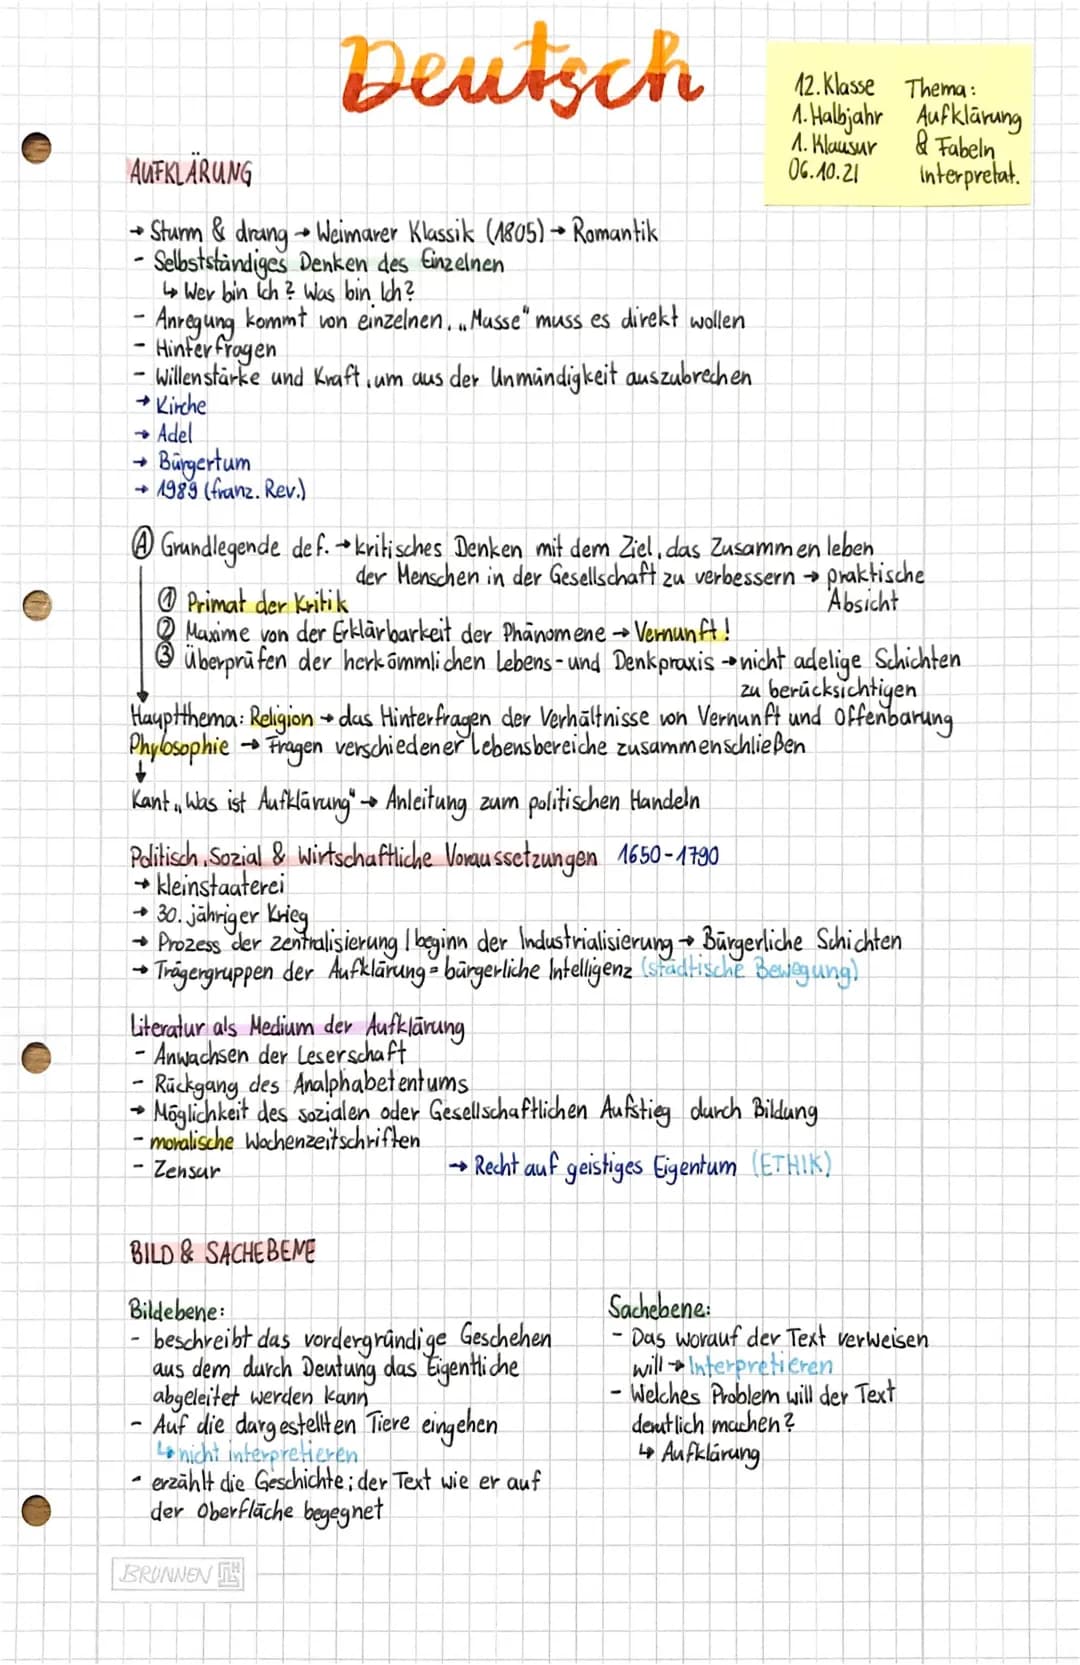 Deutsch
12. Klasse Thema:
1. Halbjahr Aufklärung
1. Klausur & Fabeln
06.10.21 interpretat.
AUFKLÄRUNG
→ Sturm & drang → Weimarer Klassik (1805) → Romantik
- Selbstständiges Denken des Einzelnen
↳ Wer bin Ich? Was bin Ich?
- Anregung kommt von einzelnen, „Masse" muss es direkt wollen
- Hinterfragen
- Willenstärke und Kraft, um aus der Unmündigkeit auszubrechen
→ Kirche
→ Adel
→ Bürgertum
→ 1989 (franz. Rev.)
Ⓐ Grundlegende def. → kritisches Denken mit dem Ziel, das Zusammenleben
der Menschen in der Gesellschaft zu verbessern → praktische
Absicht
① Primat der Kritik
② Maxime von der Erklärbarkeit der Phänomene → Vernunft!
③ Überprüfen der herkömmlichen Lebens- und Denkpraxis → nicht adelige Schichten
zu berücksichtigen
Hauptthema: Religion → das Hinterfragen der Verhältnisse von Vernunft und Offenbarung
Phylosophie → Fragen verschiedener Lebensbereiche zusammenschließen
↓
Kant „Was ist Aufklärung" → Anleitung zum politischen Handeln
Politisch, Sozial & Wirtschaftliche Voraussetzungen 1650-1790
→ kleinstaaterei
→ 30. jähriger Krieg
→ Prozess der zentralisierung / beginn der Industrialisierung → Bürgerliche Schichten
→ Trägergruppen der Aufklärung = bürgerliche Intelligenz (städtische Bewegung)
Literatur als Medium der Aufklärung
- Anwachsen der Leserschaft
- Rückgang des Analphabetentums
→ Möglichkeit des sozialen oder Gesellschaftlichen Aufstieg durch Bildung
- moralische Wochenzeitschriften
- Zensur → Recht auf geistiges Eigentum (ETHIK)
BILD & SACHEBENE
Bildebene:
- beschreibt das vordergründige Geschehen
aus dem durch Deutung das Eigentliche
abgeleitet werden kann
- Auf die dargestellten Tiere eingehen
↳ nicht interpretieren
- erzählt die Geschichte; der Text wie er auf
der Oberfläche begegnet
Sachebene:
- Das worauf der Text verweisen
will → Interpretieren
- Welches Problem will der Text
deutlich machen?
↳ Aufklärung
BRUNNEN